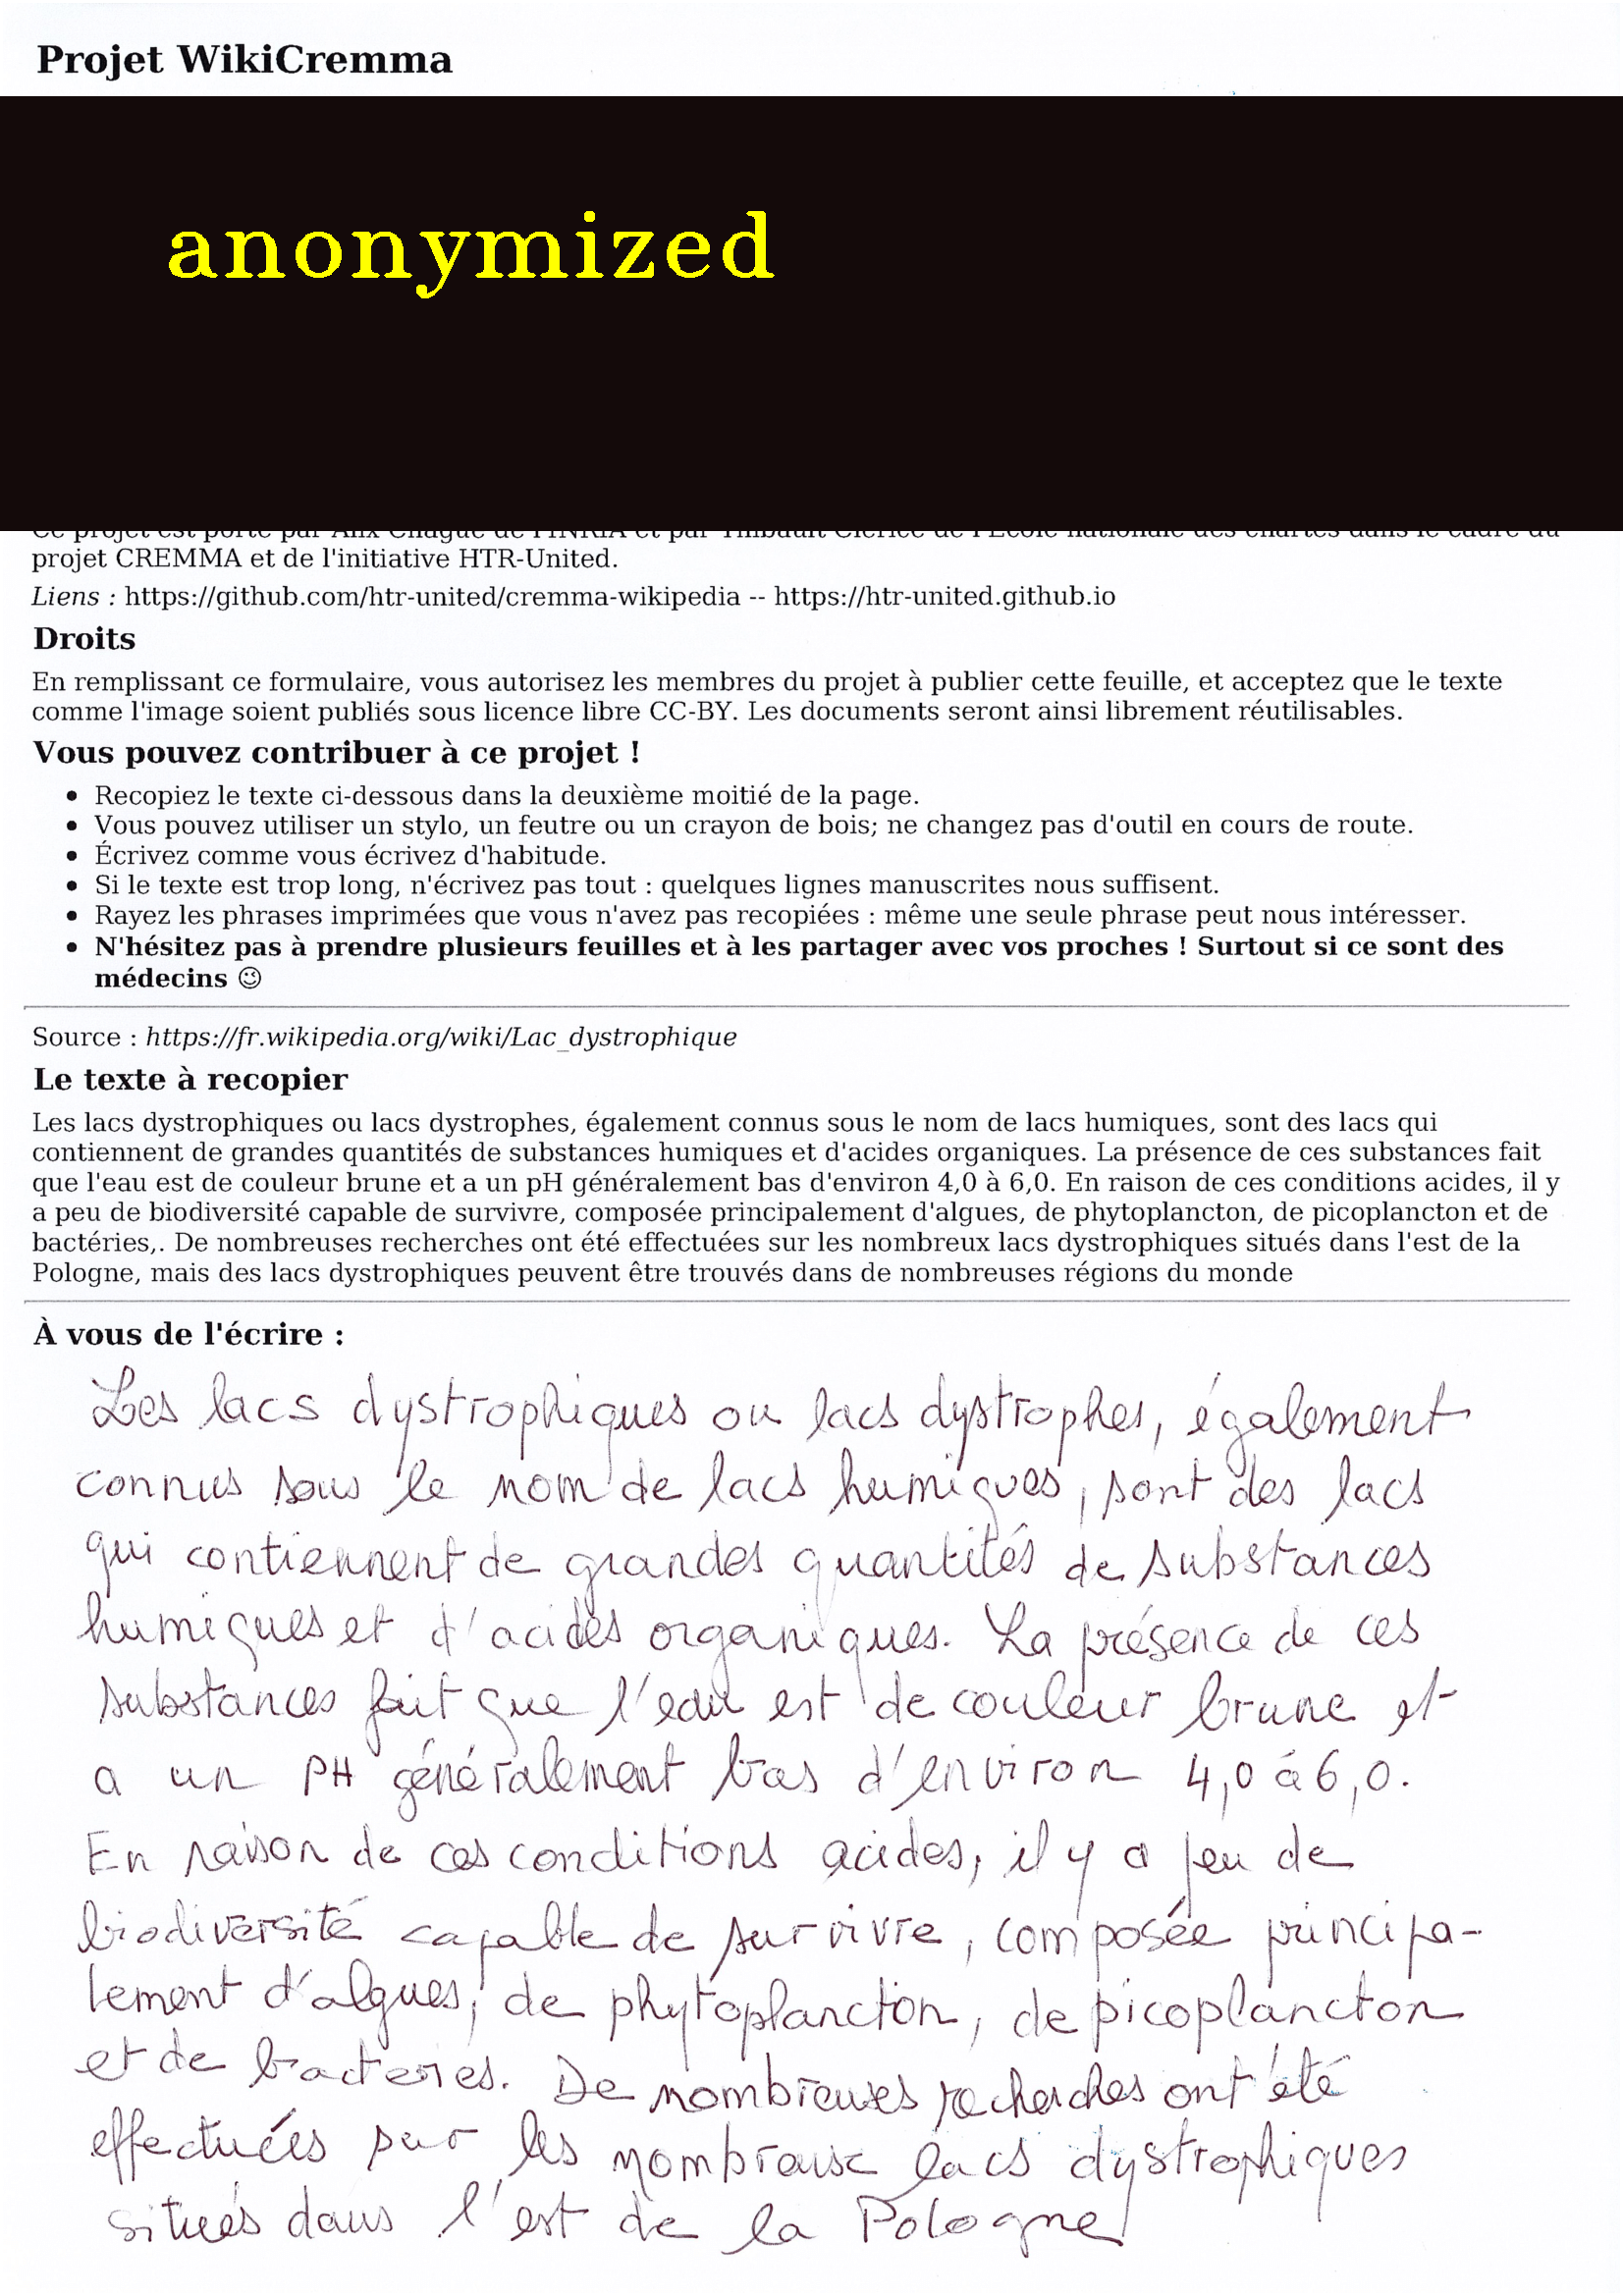 Projet WikiCremma
anonymized
Ce projet est porté par Alix Chagué de l'INRIA et par Thibault Clérice de l'École nationale des chartes dans le cadre du
projet CREMMA et de l'initiative HTR-United.
Liens : https://github.com/htr-united/cremma-wikipedia -- https://htr-united.github.io
Droits
En remplissant ce formulaire, vous autorisez les membres du projet à publier cette feuille, et acceptez que le texte
comme l'image soient publiés sous licence libre CC-BY. Les documents seront ainsi librement réutilisables.
Vous pouvez contribuer à ce projet !
• Recopiez le texte ci-dessous dans la deuxième moitié de la page.
• Vous pouvez utiliser un stylo, un feutre ou un crayon de bois; ne changez pas d'outil en cours de route.
• Écrivez comme vous écrivez d'habitude.
• Si le texte est trop long, n'écrivez pas tout : quelques lignes manuscrites nous suffisent.
• Rayez les phrases imprimées que vous n'avez pas recopiées : même une seule phrase peut nous intéresser.
• N'hésitez pas à prendre plusieurs feuilles et à les partager avec vos proches ! Surtout si ce sont des
médecins 😉
Source : https://fr.wikipedia.org/wiki/Lac_dystrophique
Le texte à recopier
Les lacs dystrophiques ou lacs dystrophes, également connus sous le nom de lacs humiques, sont des lacs qui
contiennent de grandes quantités de substances humiques et d'acides organiques. La présence de ces substances fait
que l'eau est de couleur brune et a un pH généralement bas d'environ 4,0 à 6,0. En raison de ces conditions acides, il y
a peu de biodiversité capable de survivre, composée principalement d'algues, de phytoplancton, de picoplancton et de
bactéries,. De nombreuses recherches ont été effectuées sur les nombreux lacs dystrophiques situés dans l'est de la
Pologne, mais des lacs dystrophiques peuvent être trouvés dans de nombreuses régions du monde
À vous de l'écrire :
Les lacs dystrophiques ou lacs dystrophes, également
connus sous le nom de lacs humiques, sont des lacs
qui contiennent de grandes quantités de substances
humiques et d'acides organiques. La présence de ces
substances fait que l'eau est de couleur brune et
a un PH généralement bas d'environ 4,0 à 6,0.
En raison de ces conditions acides, il y a peu de
biodiversité capable de survivre, composée principa-
lement d'algues, de phytoplancton, de picoplancton
et de bacteries. De nombreuses recherches ont été
effectuées sur les nombreux lacs dystrophiques
situés dans l'est de la Pologne